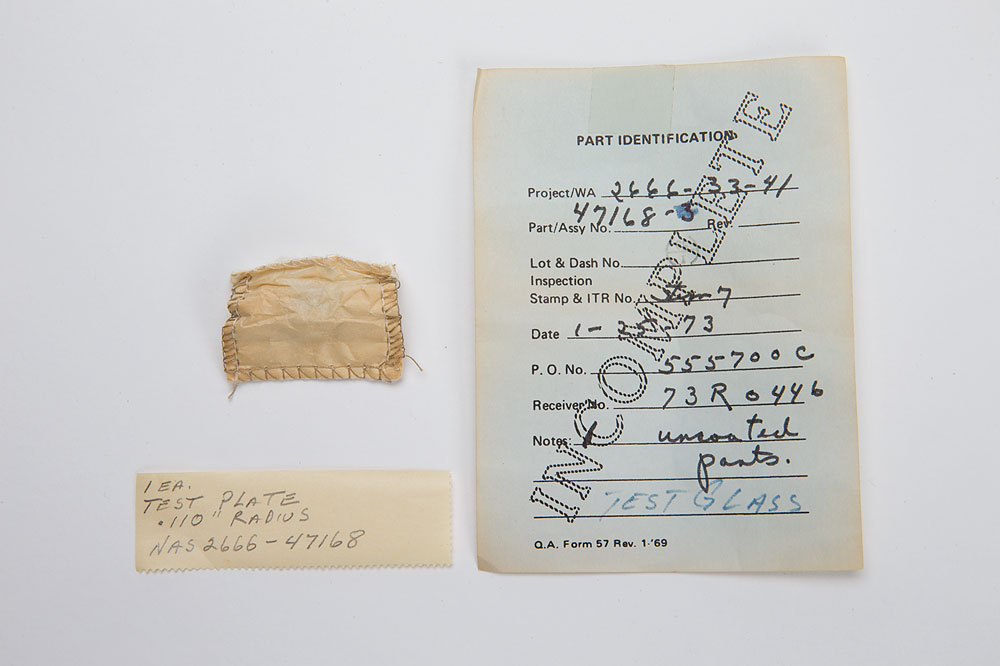 PART IDENTIFICATION
INCOMPLETE
Project/WA 2666-33-41
Part/Assy No. 47168-3 Rev.
Lot & Dash No.
Inspection
Stamp & ITR No. 7
Date 1-25-73
P. O. No. 555700C
Receiver No. 73R0446
Notes: uncoated
parts.
TEST GLASS
Q.A. Form 57 Rev. 1-'69
1 EA.
TEST PLATE
.110" RADIUS
NAS2666-47168